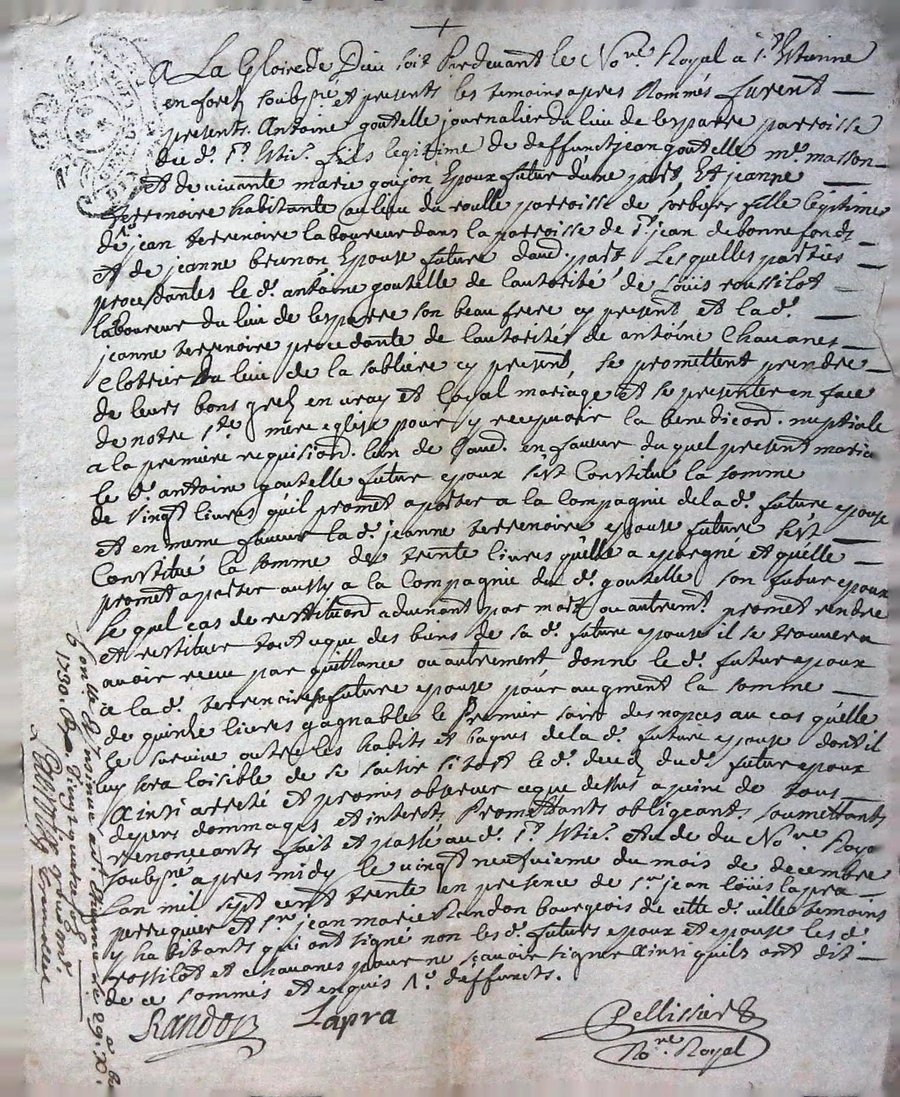 A La Gloire de Dieu soit Pardevant le No.re Royal a St. Etienne
en forez soubsne. et presents les temoins apres Nommés furent
presents. Antoine goutelle journalier du lieu de lesparre parroisse
du d. St. Etie. fils legitime de deffunct jean goutelle me. masson
et de vivante marie goujon Epoux futur dune part Et jeanne
terrenoire habitante au lieu du roulle parroisse de sorbiers fille legitime
de jean terrenoire laboureur dans la parroisse de St. jean de bonnefonds
et de jeanne brunon Epouse future daud. part Lesquelles parties
procedantes le d. antoine goutelle de lautorité de Louis roussilot
laboureur du lieu de lesparre son beau frere cy present et la d.
jeanne terrenoire procedante de lautorités de antoine Chavanes
Clotrier du lieu de la sabliere cy present, se promettent prendre
de leurs bons grez en vray et loyal mariage et se presenter en face
de notre Ste. mere eglise pour y recepvoir la benediction. nuptiale
a la premiere requision. lun de laud. en faveur du quel present maria
le d. antoine goutelle futur epoux s'est Constitué la somme
de vingt livres qu'il promet aporter a la Compagnie de la d. future epouse
et en meme faveur la d. jeanne terrenoire epouse future s'est
Constitué la somme de trente livres qu'elle a epargné et qu'elle
promet aporter aussy a la Compagnie du d. goutelle son futur epoux
le quel cas de restituon advenant par mort ou autremt. promet rendre
et restituer tout ce que des biens de sa d. future epouse il se trouvera
avoir receu par quittance ou autrement donne le d. futur epoux
a la d. terrenoire future epouse pour augment la somme
de quinze livres gagnable le Premier soir des nopces au cas qu'elle
le survive outre les habits et bagues de la d. future epouse dont il
luy sera loisible de se saisir sitost le d. decez du d. futur epoux
Ainsi arreté et promis observer ce que dessus a peine de tous
depens dommages et interets Promettants obligeant, soumettants
renonceants fait et passé au d. St. Etie. etude du No.re Roya
soubsne. apres midy le vingt neufuieme du mois de decembre
lan mil sept cent trente en presence de sr. jean Louis lapra
perruquier et sr. jean marie Randon bourgeois de cette d. ville temoins
y habitants qui ont signé non les d. futurs epoux et epouse les d.
rossilot et chavanes pour ne sçavoir signer Ainsi quils ont dit
de ce sommés et enquis
Randon Lapra
Pellissier
No.re Royal
Con.lle & insinué a St. Etienne le 29. Xbre
1730. vingt quatre sols